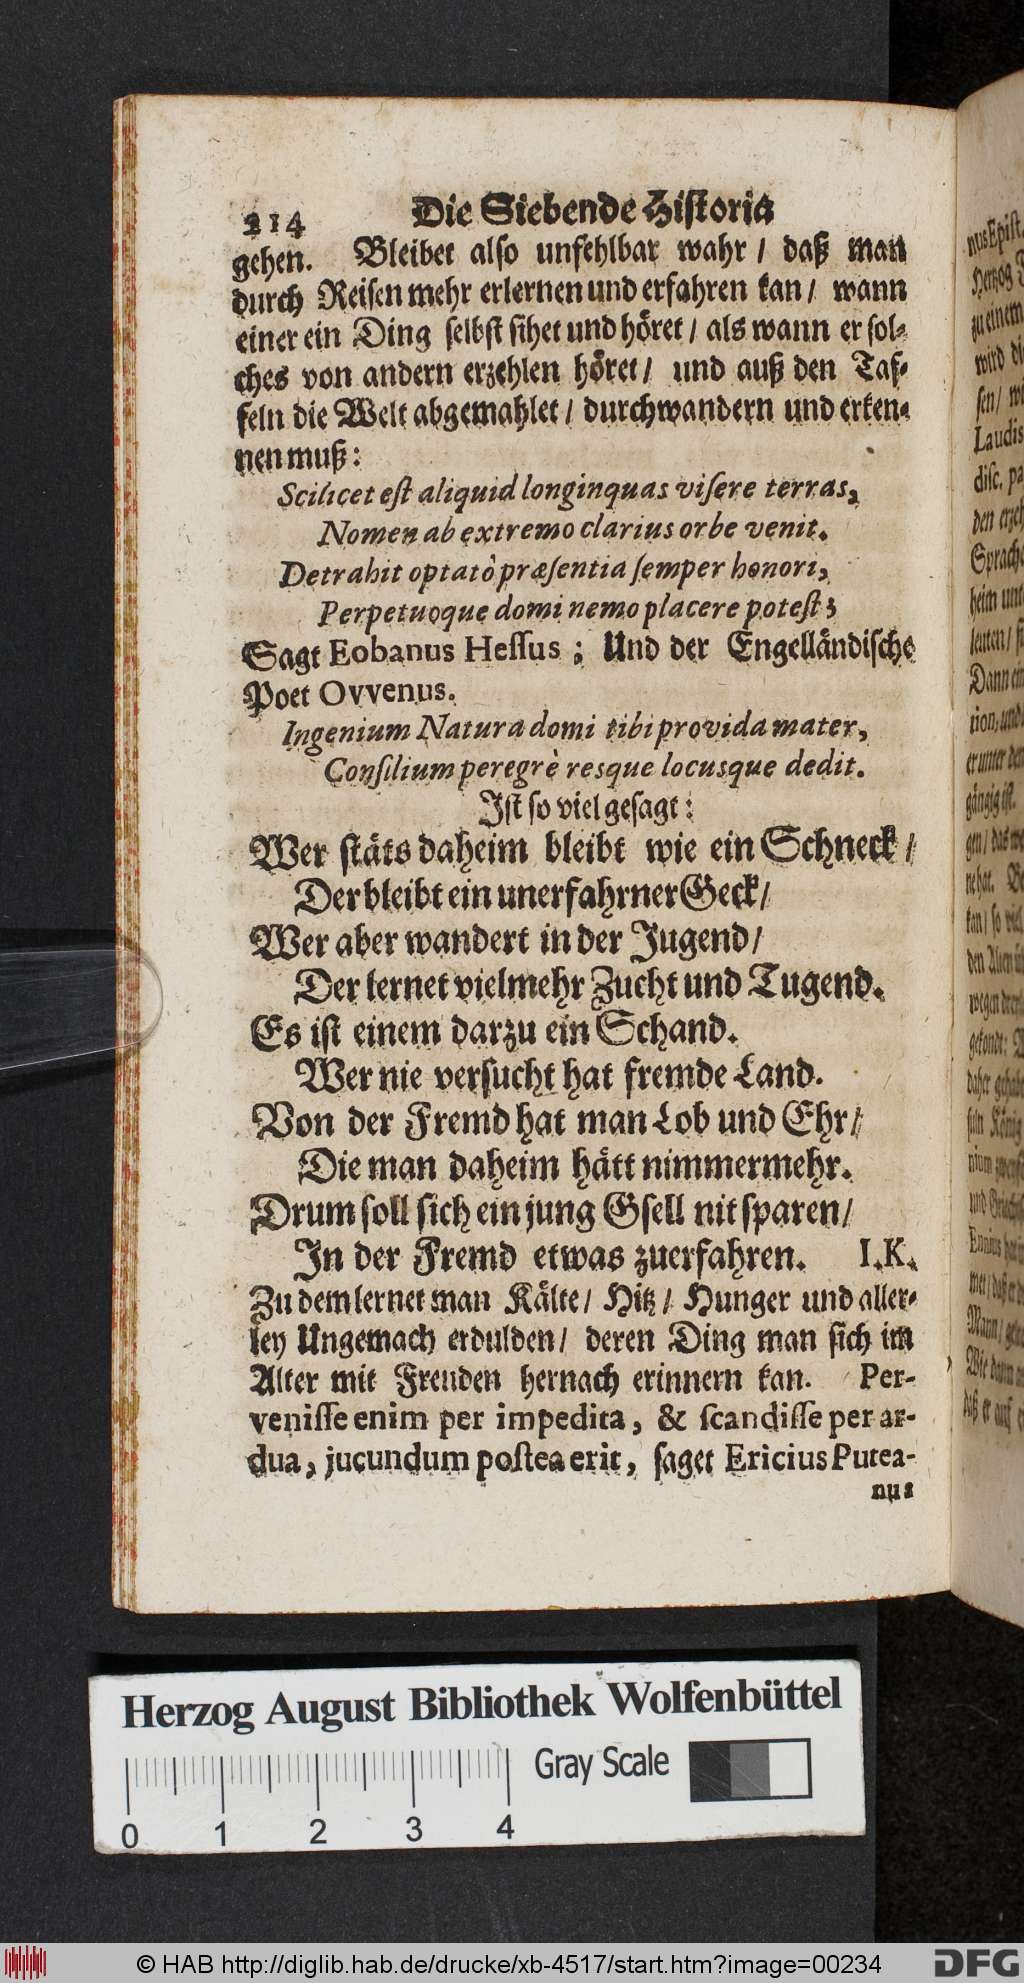 214 Die Siebende Historia
gehen. Bleibet also unfehlbar wahr / daß man
durch Reisen mehr erlernen und erfahren kan / wann
einer ein Ding selbst sihet und höret / als wann er sol-
ches von andern erzehlen höret / und auß den Taf-
feln die Welt abgemahlet / durchwandern und erken-
nen muß:
Scilicet est aliquid longinquas visere terras,
Nomen ab extremo clarius orbe venit.
Detrahit optatò præsentia semper honori,
Perpetuoque domi nemo placere potest;
Sagt Eobanus Hessus ; Und der Engelländische
Poet Ovvenus.
Ingenium Natura domi tibi provida mater,
Consilium peregrè resque locusque dedit.
Ist so viel gesagt:
Wer stäts daheim bleibt wie ein Schneck /
Der bleibt ein unerfahrner Geck /
Wer aber wandert in der Jugend /
Der lernet vielmehr Zucht und Tugend.
Es ist einem darzu ein Schand.
Wer nie versucht hat fremde Land.
Von der Fremd hat man Lob und Ehr /
Die man daheim hätt nimmermehr.
Drum soll sich ein jung Gsell nit sparen /
In der Fremd etwas zuerfahren. I.K.
Zu dem lernet man Kälte / Hitz / Hunger und aller-
ley Ungemach erdulden / deren Ding man sich im
Alter mit Freuden hernach erinnern kan. Per-
venisse enim per impedita, & scandisse per ar-
dua, jucundum postea erit, saget Ericius Putea-
nus
nus Epist.
Hertzog
zu einem
wird
sen /
Laudis
disc.
den
Sprach
heim
leuten /
Dann
tion, und
er unter
gängig ist.
gen / das
ne hat.
kan / so viel
den
wegen
gekandt:
daher
König
nium
und
Ennius
mer / daß er
Mann /
Wie dann
daß er auf
Herzog August Bibliothek Wolfenbüttel
Gray Scale
0 1 2 3 4
© HAB http://diglib.hab.de/drucke/xb-4517/start.htm?image=00234
DFG